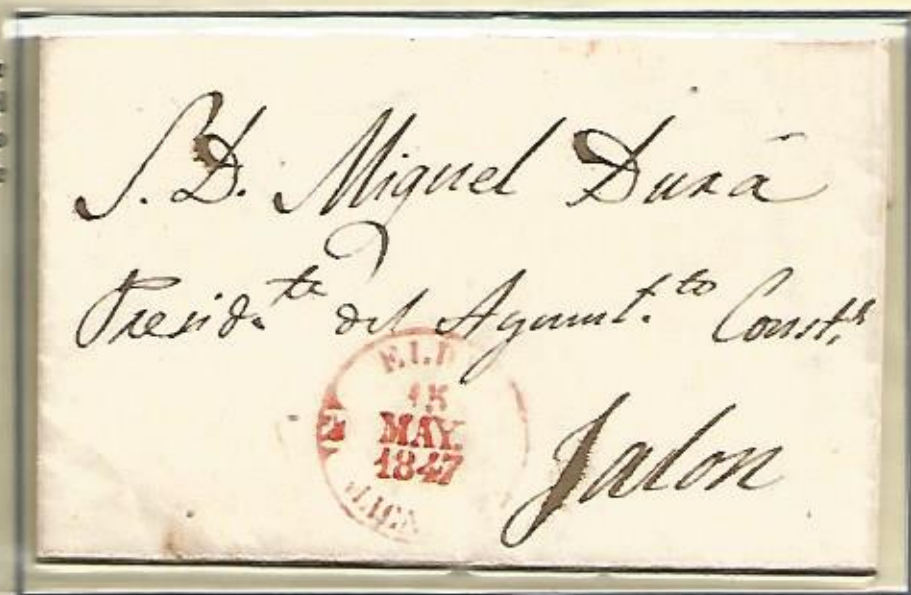 S. D. Miguel Durá
Presid.te del Ayunt.to Const.l
ELD
15
MAY.
1847
ALICAN
Jalon